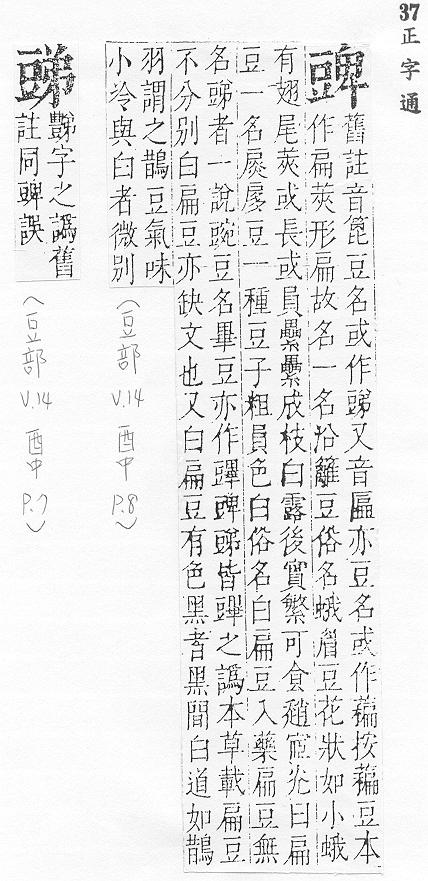 37正字通
豍
舊註音篦豆名或作又音匾亦豆名或作藊按藊豆本
作扁莢形扁故名一名沿籬豆俗名蛾眉豆花狀如小蛾
有翅尾莢或長或員纍纍成枝白露後實繁可食曰扁
豆一名豆一種豆子粗員色白俗名白扁豆入藥扁豆無
名者一說豌豆名畢豆亦作豍皆之譌本草載扁豆
不分別白扁豆亦缺文也又白扁豆有色黑者黑間白道如鵲
羽謂之鵲豆氣味
小冷與白者微別
(豆部 V.14 酉中 P.8)
豑字之譌舊
註同豍誤
(豆部 V.14 酉中 P.7)